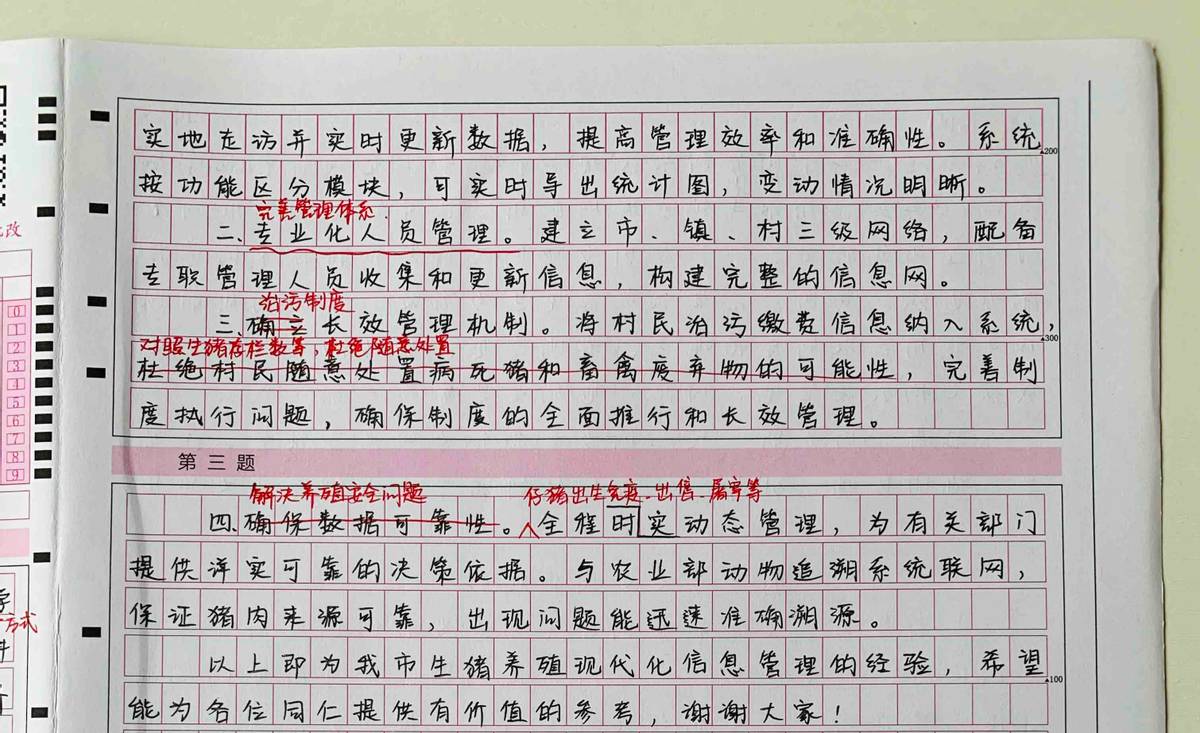 实地走访并实时更新数据，提高管理效率和准确性。系统
200
按功能区分模块，可实时导出统计图，变动情况明晰。
完善管理体系
二、专业化人员管理。建立市、镇、村三级网络，配备
专职管理人员收集和更新信息，构建完整的信息网。
治污制度
三、确立长效管理机制。将村民治污缴费信息纳入系统，
300
对照生猪存栏数等，杜绝随意处置
杜绝村民随意处置病死猪和畜禽废弃物的可能性，完善制
度执行问题，确保制度的全面推行和长效管理。
第三题
解决养殖安全问题
仔猪出生免疫、出售、屠宰等
四、确保数据可靠性。全程时实动态管理，为有关部门
提供详实可靠的决策依据。与农业部动物追溯系统联网，
保证猪肉来源可靠，出现问题能迅速准确溯源。
以上即为我市生猪养殖现代化信息管理的经验，希望
100
能为各位同仁提供有价值的参考，谢谢大家！
改
0
1
2
3
4
5
6
7
8
9
方式